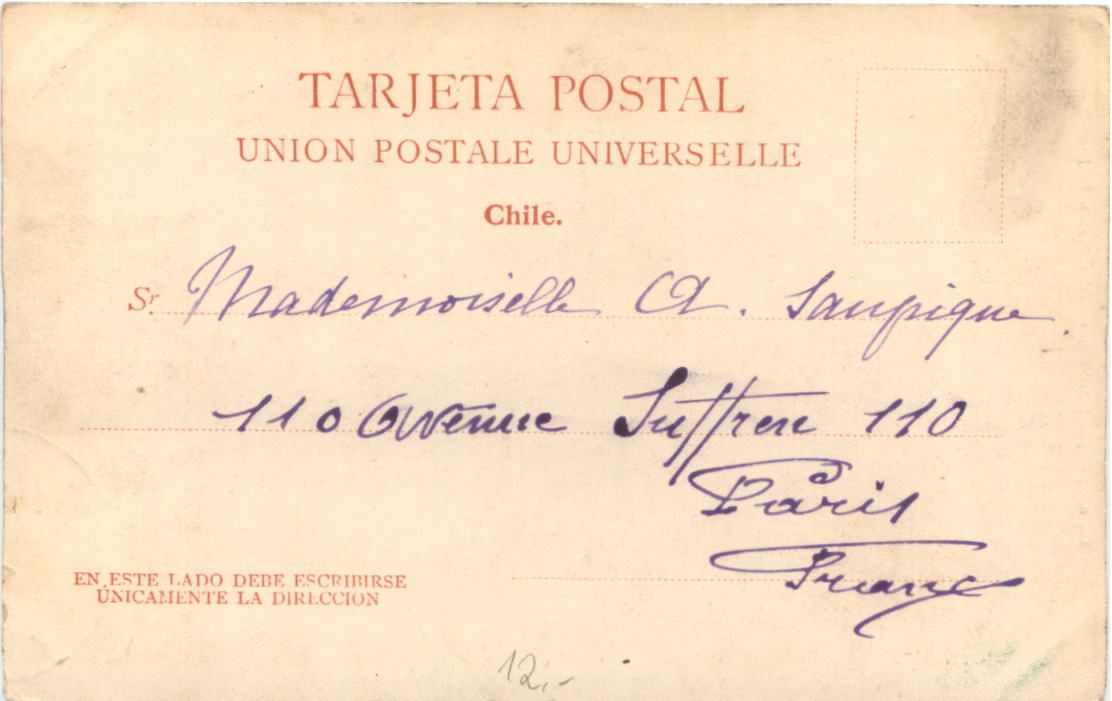 TARJETA POSTAL
UNION POSTALE UNIVERSELLE
Chile.
Sr. Mademoiselle A. Saupique
110 Avenue Suffren 110
Paris
France
EN ESTE LADO DEBE ESCRIBIRSE
ÚNICAMENTE LA DIRECCION
12,-